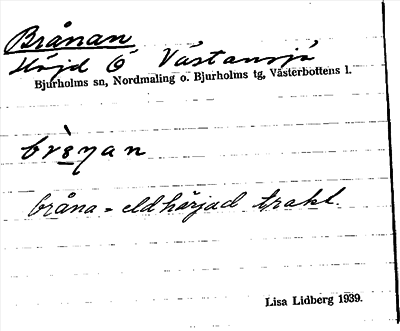 Brånan
Höjd Ö Västansjö
Bjurholms sn, Nordmaling o. Bjurholms tg, Västerbottens l.
bråna = eldhärjad trakt.
Lisa Lidberg 1939.